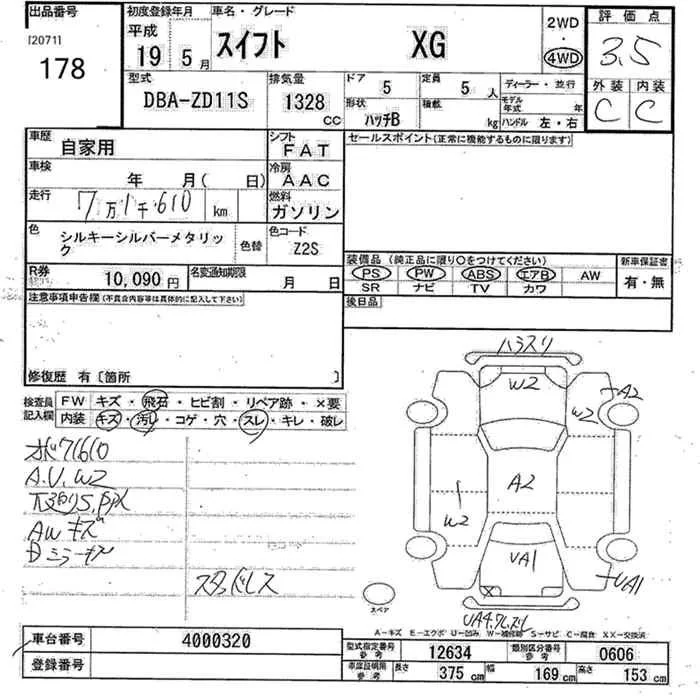 出品番号
[2071]
178
初度登録年月
平成
19 5月
車名・グレード
スイフト XG
2WD
・
4WD
評価点
3.5
外装 内装
C C
型式
DBA-ZD11S
排気量
1328
CC
ドア 5
定員 5 人
形状 ハッチB
積載 kg
ディーラー・並行
モデル年式 年
ハンドル 左・右
車歴 自家用
シフト FAT
車検 年 月( 日)
冷房 AAC
走行 7万1千610 km
燃料 ガソリン
色 シルキーシルバーメタリック
色替
色コード Z2S
R券 10,090円
名変通知期限 月 日
セールスポイント(正常に機能するものに限ります)
装備品(純正品に限り〇をつけてください)
新車保証書
PS PW ABS エアB AW
有・無
SR ナビ TV カワ
後日品
注意事項申告欄(不具合内容等は具体的に記入して下さい)
修復歴 有〔箇所
検査員記入欄
FW キズ・飛石・ヒビ割・リペア跡・×要
内装 キズ・汚れ・コゲ・穴・スレ・キレ・破レ
A.U.W2
AWキズ
Dミラーキズ
スタッドレス
ハラスリ
W2
A2
W2
A2
W2
UA1
UA1
スペア
A-キズ E-エクボ U-凹み W-補修跡 S-サビ C-腐食 XX-交換済
車台番号 4000320
登録番号
型式指定番号 参考 12634
類別区分番号 参考 0606
車庫証明用 参考 長さ 375 cm 幅 169 cm 高さ 153 cm